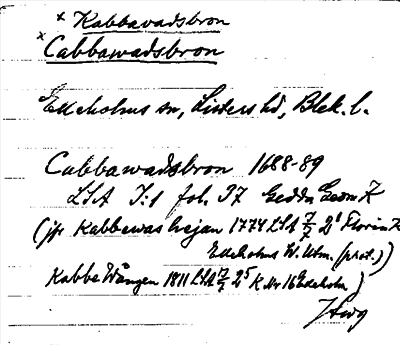 × Kabbavadsbron
× Cabbawadsbron
Edeholms sn, Listers hd, Blek. l.
Cabbawadsbron 1688-89
LSA I:1 fol. 37 Geddu Geom K
(jfr Kabbewas hejan 1774 LSA 7/7 2¹ Florin K
Edeholms W. Utm. (prot.))
Kabbe Wången 1811 LSA 17/7 2⁵ K Nr 16 Edeholm)